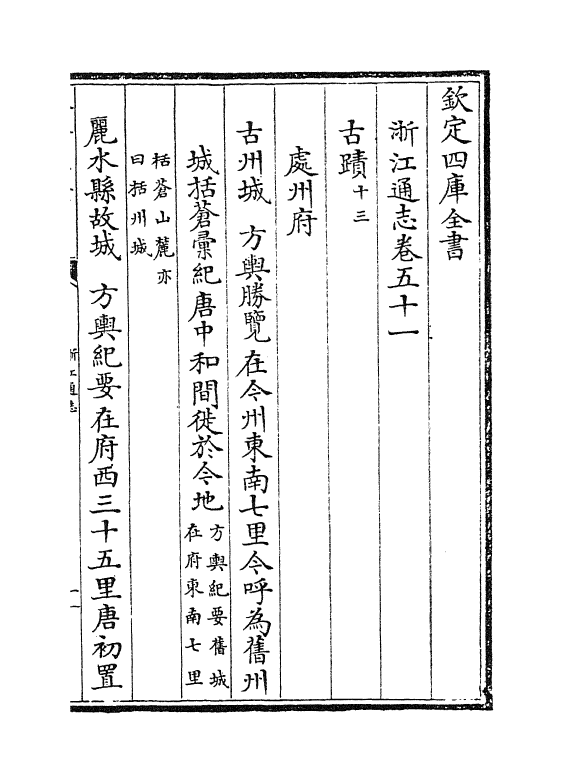 欽定四庫全書
浙江通志卷五十一
古蹟十三
處州府
古州城 方輿勝覽在今州東南七里今呼為舊州
城括蒼彙紀唐中和間徙於今地方輿紀要舊城在府東南七里
括蒼山麓亦曰括州城
麗水縣故城 方輿紀要在府西三十五里唐初置
浙江通志